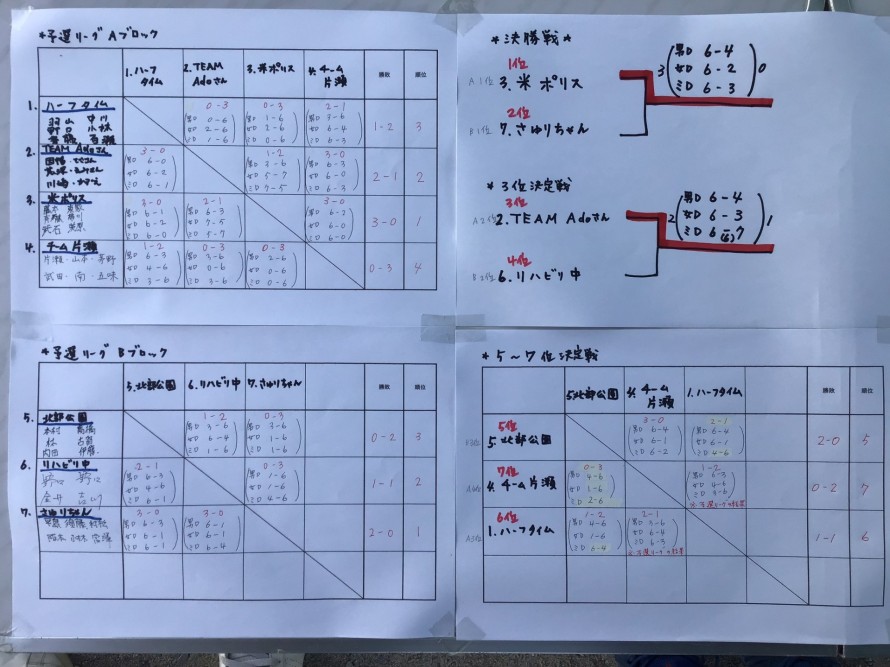 *予選リーグ Aブロック
1.ハーフタイム 2.TEAM Adoさん 3.米ポリス 4.チーム片瀬 勝敗 順位
1. ハーフタイム 0-3 0-3 2-1 1-2 3
男D 0-6 男D 1-6 男D 3-6
女D 2-6 女D 2-6 女D 6-4
ミD 1-6 ミD 0-6 ミD 6-3
2. TEAM Adoさん 3-0 1-2 3-0 2-1 2
男D 6-0 男D 3-6 男D 6-3
女D 6-2 女D 5-7 女D 6-0
ミD 6-1 ミD 7-5 ミD 6-3
3. 米ポリス 3-0 2-1 3-0 3-0 1
男D 6-1 男D 6-3 男D 6-2
女D 6-2 女D 7-5 女D 6-0
ミD 6-0 ミD 5-7 ミD 6-0
4. チーム片瀬 1-2 0-3 0-3 0-3 4
片瀬・山本・茅野 男D 6-3 男D 3-6 男D 2-6
武田・南・五味 女D 4-6 女D 0-6 女D 0-6
ミD 3-6 ミD 3-6 ミD 0-6
*決勝戦*
1位
A1位 3.米ポリス
2位
B1位 7.さゆりちゃん
3 男D 6-4 0
女D 6-2
ミD 6-3
*3位決定戦
3位
A2位 2.TEAM Adoさん
4位
B2位 6.リハビリ中
2 男D 6-4 1
女D 6-3
ミD 6(6)7
*予選リーグ Bブロック
5.北部公園 6.リハビリ中 7.さゆりちゃん 勝敗 順位
5. 北部公園 1-2 0-3 0-2 3
男D 3-6 男D 3-6
女D 6-4 女D 1-6
内田 伊藤 ミD 1-6 ミD 1-6
6. リハビリ中 2-1 0-3 1-1 2
男D 6-3 男D 1-6
女D 4-6 女D 1-6
ミD 6-1 ミD 4-6
7. さゆりちゃん 3-0 3-0 2-0 1
男D 6-3 男D 6-1
女D 6-1 女D 6-1
ミD 6-1 ミD 6-4
*5〜7位決定戦
5.北部公園 4.チーム片瀬 1.ハーフタイム 勝敗 順位
5位
B3位 5.北部公園 3-0 2-1 2-0 5
男D 6-4 男D 6-4
女D 6-1 女D 6-1
ミD 6-2 ミD 4-6
7位
A4位 4.チーム片瀬 0-3 1-2 0-2 7
男D 4-6 男D 6-3
女D 1-6 女D 4-6
ミD 2-6 ミD 3-6
※予選リーグの結果
6位
A3位 1.ハーフタイム 1-2 2-1 1-1 6
男D 4-6 男D 3-6
女D 1-6 女D 6-4
ミD 6-4 ミD 6-3
※予選リーグの結果